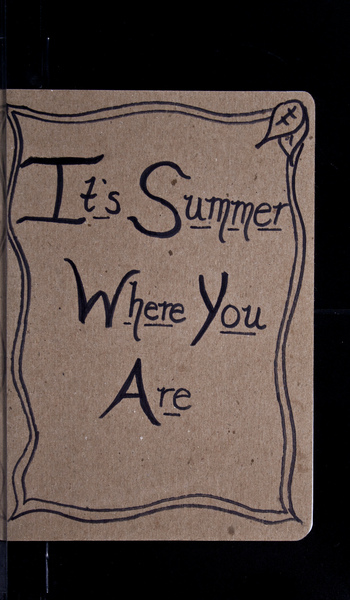 It's Summer
Where You
Are